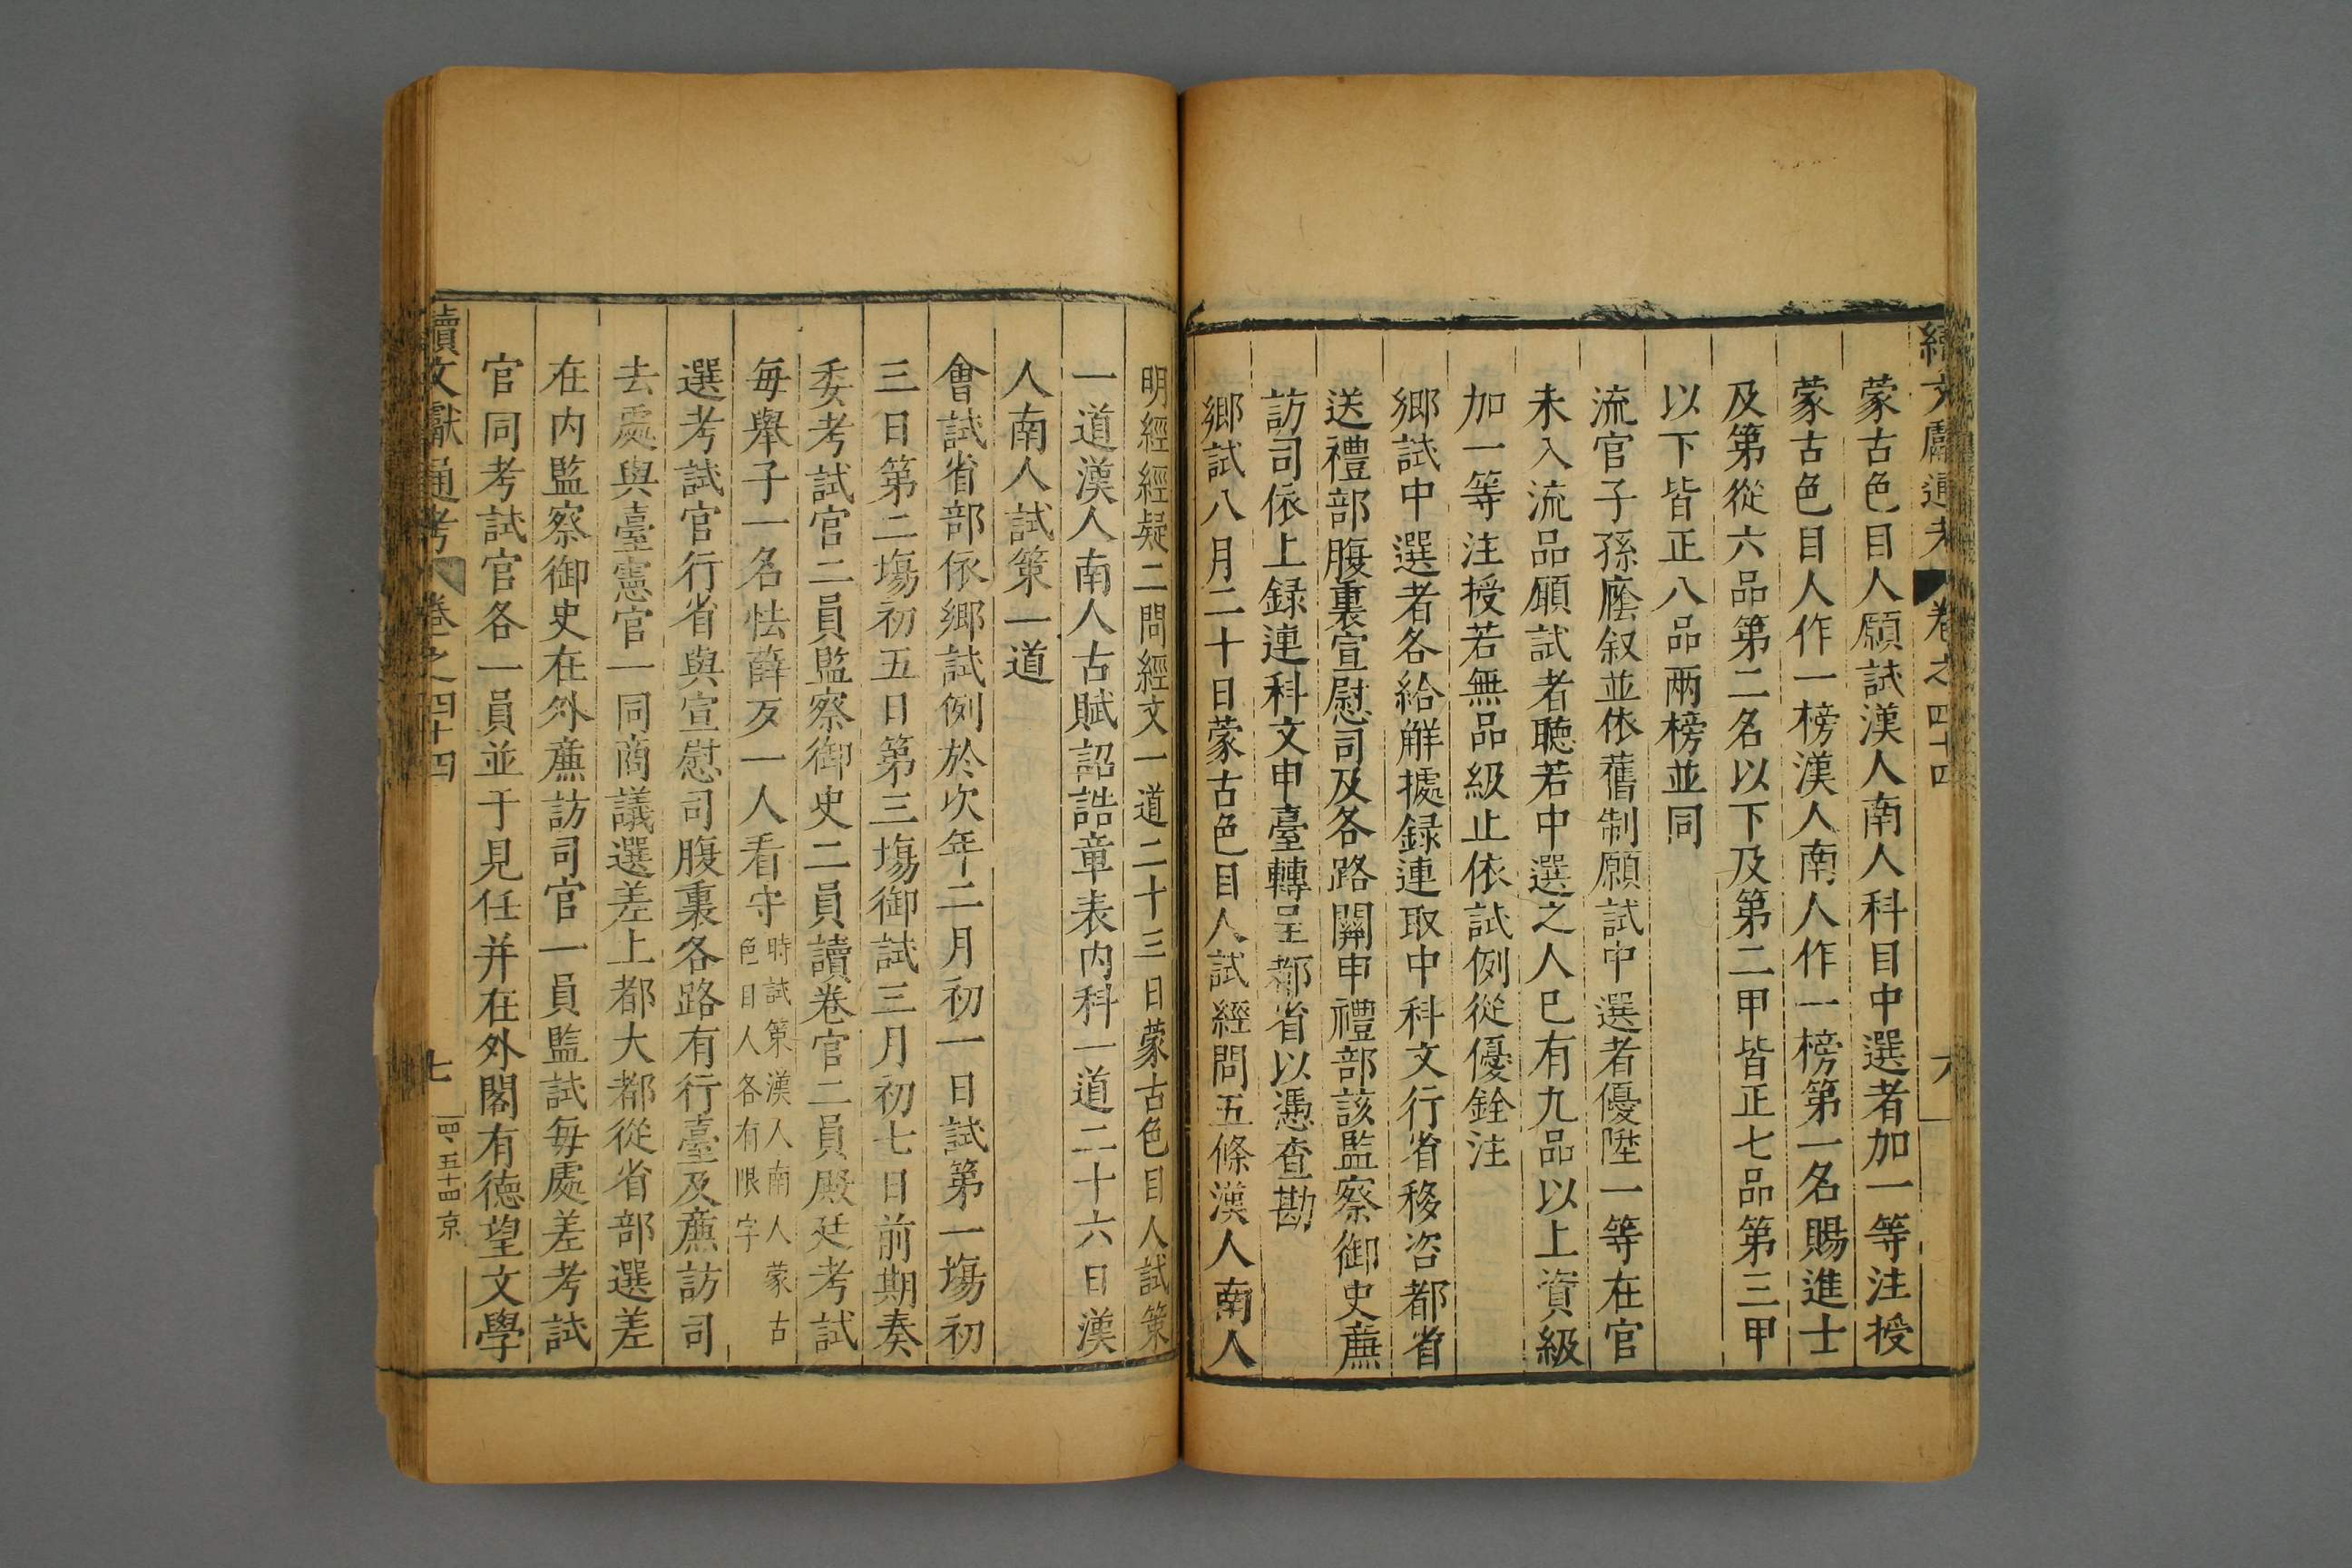 續文獻通考 卷之四十四 六
蒙古色目人願試漢人南人科目中選者加一等注授
蒙古色目人作一榜漢人南人作一榜第一名賜進士
及第從六品第二名以下及第二甲皆正七品第三甲
以下皆正八品兩榜並同
流官子孫廕叙並依舊制願試中選者優陞一等在官
未入流品願試者聽若中選之人已有九品以上資級
加一等注授若無品級止依試例從優銓注
鄉試中選者各給解據録連取中科文行省移咨都省
送禮部腹裏宣慰司及各路關申禮部該監察御史廉
訪司依上録連科文申臺轉呈都省以憑查勘
鄉試八月二十日蒙古色目人試經問五條漢人南人
明經經疑二問經文一道二十三日蒙古色目人試策
一道漢人南人古賦詔誥章表内科一道二十六日漢
人南人試策一道
會試省部依鄉試例於次年二月初一日試第一塲初
三日第二塲初五日第三塲御試三月初七日前期奏
委考試官二員監察御史二員讀卷官二員殿廷考試
每舉子一名怯薛歹一人看守時試策漢人南人蒙古
色目人各有限字
選考試官行省與宣慰司腹裏各路有行臺及廉訪司
去處與臺憲官一同商議選差上都大都從省部選差
在内監察御史在外廉訪司官一員監試每處差考試
官同考試官各一員並于見任并在外閣有德望文學
續文獻通考 卷之四十四 七 四、五十四 京